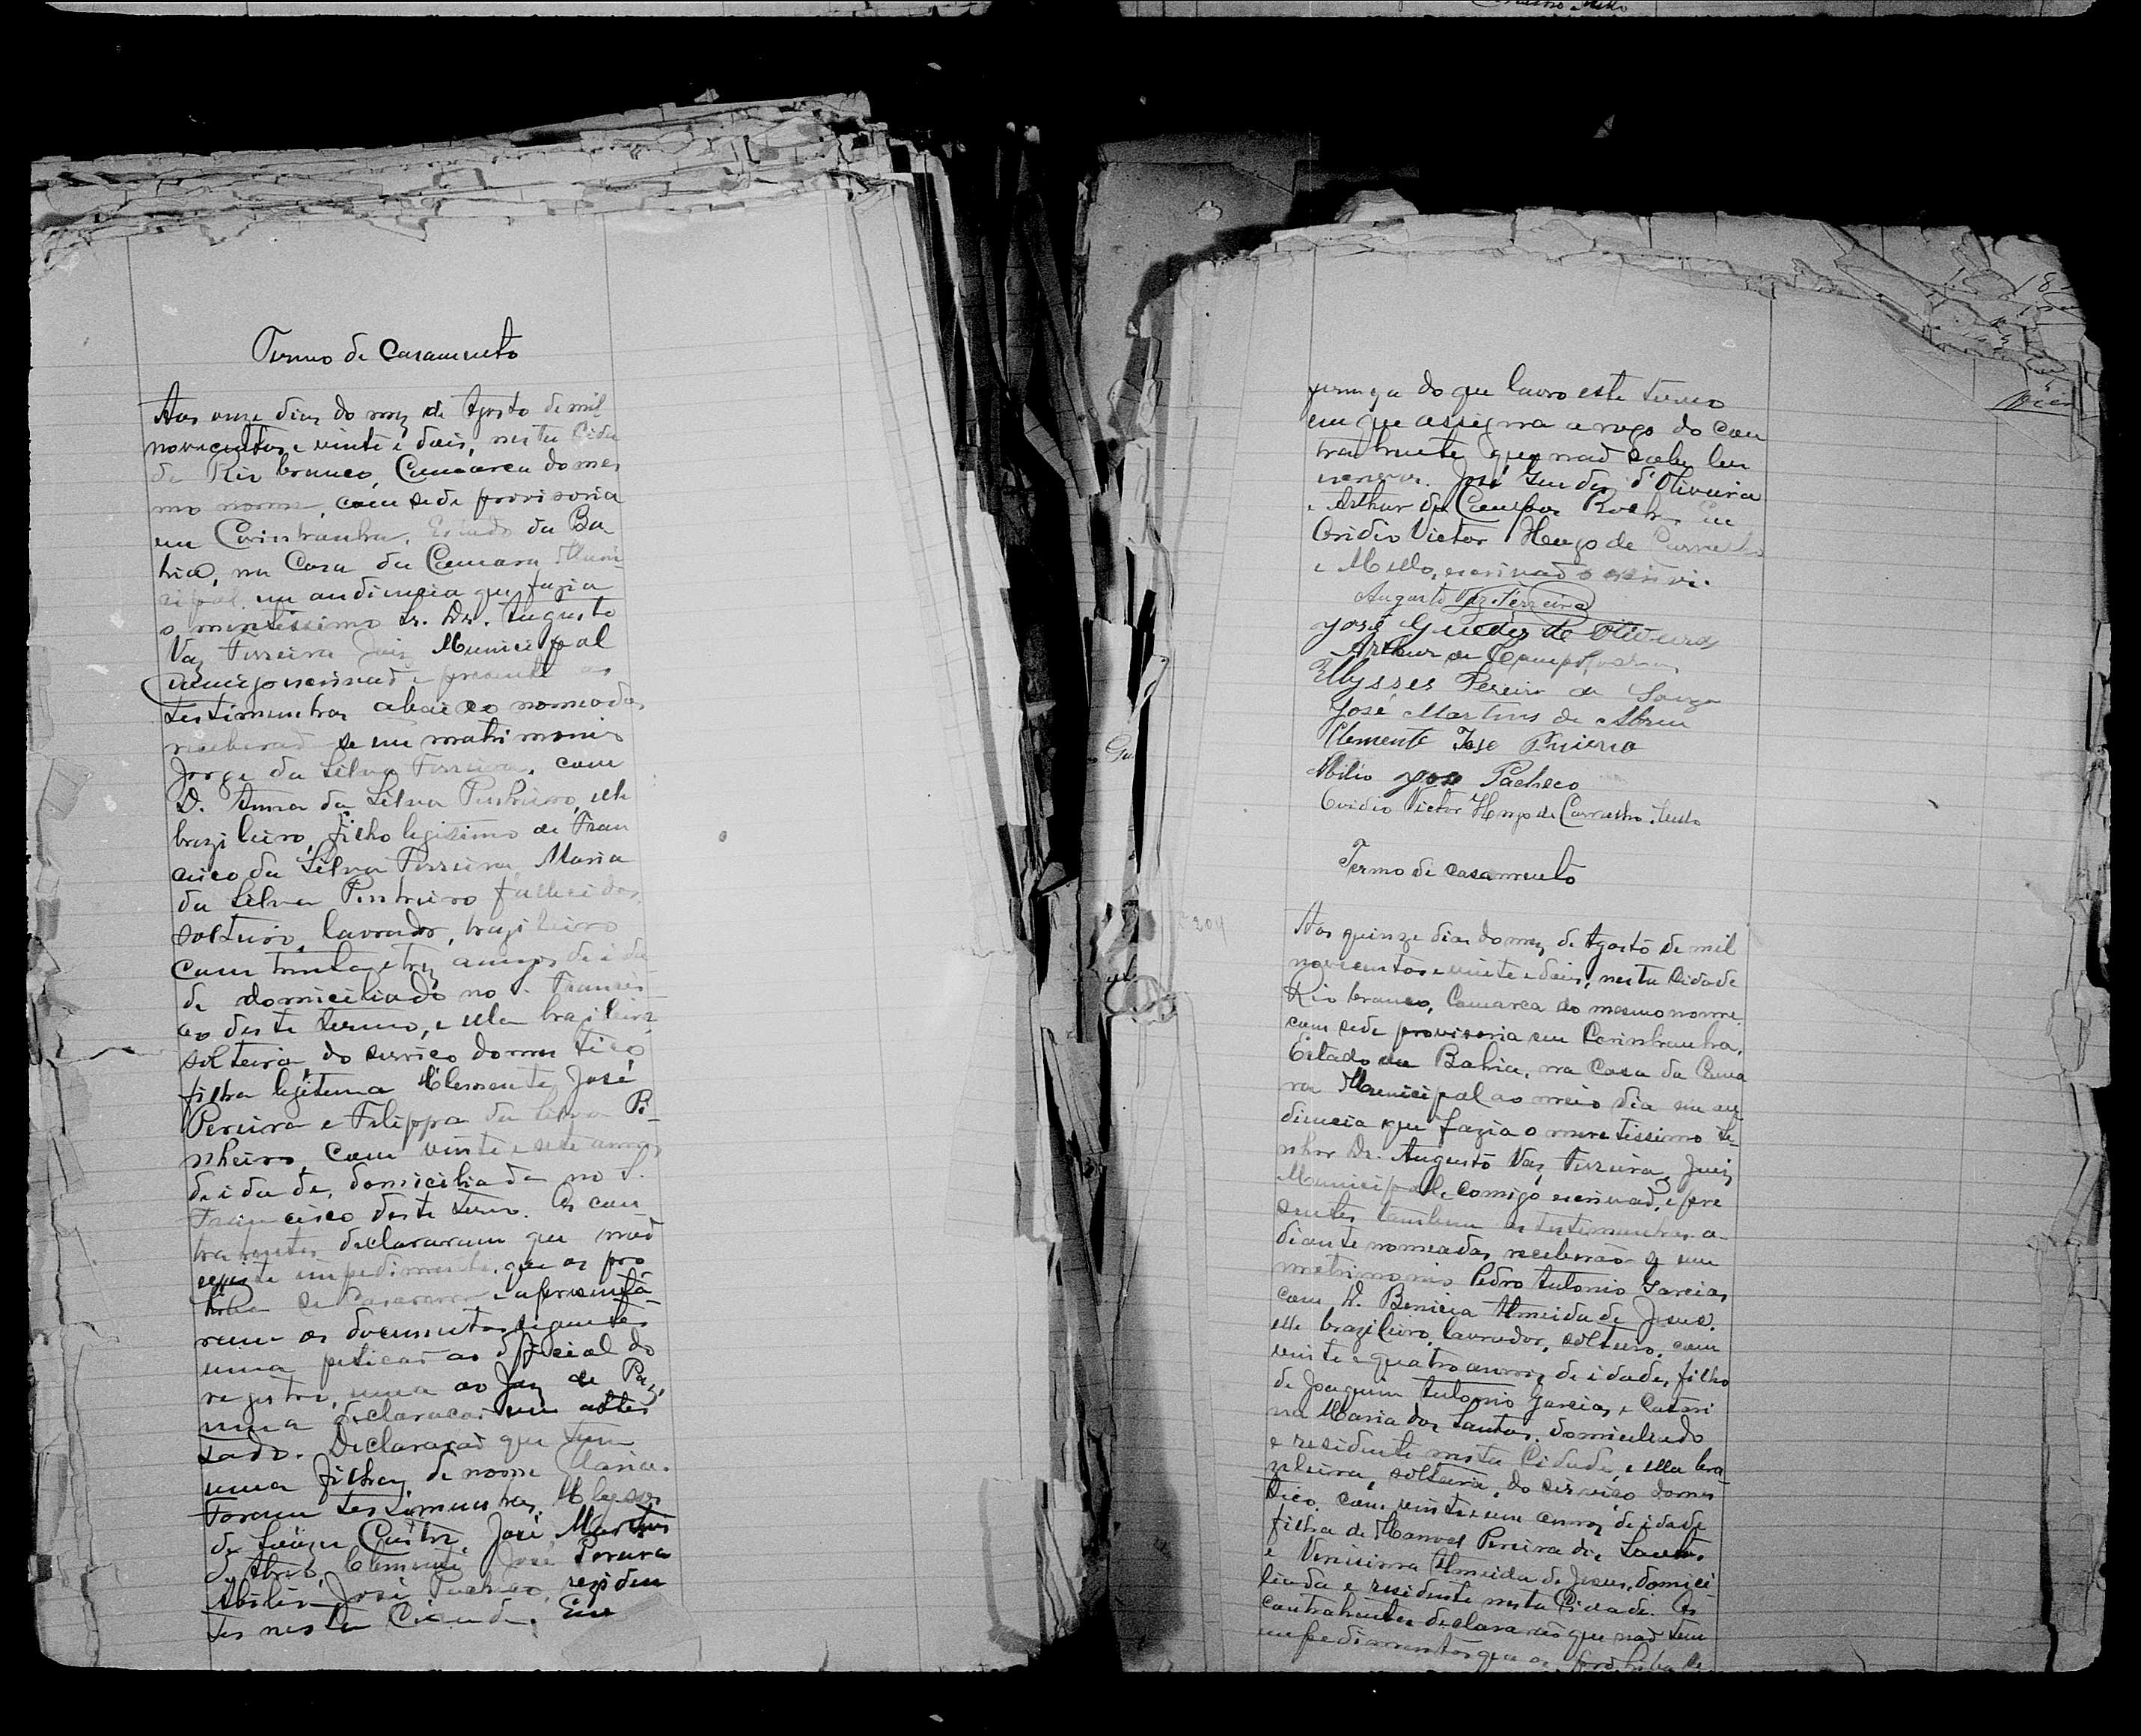 Termo de Casamento
Aos onze dias do mez de Agosto de mil
novecentos e vinte e dois, nesta Cida
de Rio branco, Camarca do mes
mo nome, com sede provisoria
em Carinhanha, Estado da Ba
hia, na Casa da Camara Muni
cipal em audiencia que fazia
o meretissimo Sr. Dr. Augusto
Vaz Ferreira Juiz Municipal
comigo escrivad e presente as
testimunhas abaixo nomeadas
receberad se em matrimonio
Jorge da Silva Ferreira, com
D. Anna da Silva Pinheiro, elle
brazileiro, filho legitimo de Fran
cisco da Silva Ferreira Maria
da Silva Pinheiro fallecidos,
solteiro, lavrador, brazileiro
com trinta e trez annos de ida
de domiciliado no S. Francis
co deste termo, e ella brazileira,
solteira, do serviço domestico,
filha legitima Clemente José
Pereira e Felippa da Silva Pi
nheiro, com vinte e sete annos
de idade, domiciliada no S.
Francisco deste termo. Os con
trahentes declararam que nad
existe impedimento que os pro
hiba de casarem e apresentá
ram os documentos seguintes
uma peticad ao Official do
registro, uma ao Juiz de Paz,
uma declaracad um attes
tado. Declararad que tem
uma filha de nome Maria.
Foram testimunhas, Ulysses
de Souza Castro, José Martins
d'Abreu, Clemente José Pereira
Abilio José Pacheco, residen
tes nesta Cidade. Em
firmeza do que lavro este termo
em que assigna a rogo do con
trahente que nad sabe ler
escrever. José Guedes d'Oliveira
e Arthur de Campos Rocha Eu
Ovidio Victor Hugo de Carvalho
e Mello, escrivad o escrevi.
Augusto Vaz Ferreira
José Guedes de Oliveira
Arthur de Campos
Ulysses Pereira de Souza
José Martins de Abreu
Clemente Jose Priera
Abilio José Pacheco
Ovidio Victor Hugo de Carvalho e Mello
Termo de casamento
204
Aos quinze dias do mez de Agosto de mil
novecentos e vinte e dois, nesta Cidade
Rio branco, Camarca do mesmo nome,
com sede provisoria em Carinhanha,
Estado da Bahia, na Casa da Cama
ra Municipal ao meio dia em au
diencia que fazia o meretissimo Se
nhor Dr. Augusto Vaz Ferreira, Juiz
Municipal, comigo escrivad, e pre
sentes tambem as testimunhas a
diante nomeadas, receberão se em
matrimonio Pedro Antonio Garcia,
com D. Benicia Almeida de Jesus.
elle brazileiro, lavrador, solteiro, com
vinte e quatro annos de idade, filho
de Joaquim Antonio Garcia, e Catari
na Maria dos Santos, domiciliado
e residente nesta Cidade, e ella bra
zileira, solteira, do serviço domes
tico, com vinte e um annos de idade
filha de Manoel Pereira de
e Almeida de Jesus, domici
liada e residente nesta Cidade. Os
contrahentes declararão que nad tem
impedimentos que os prohiba de